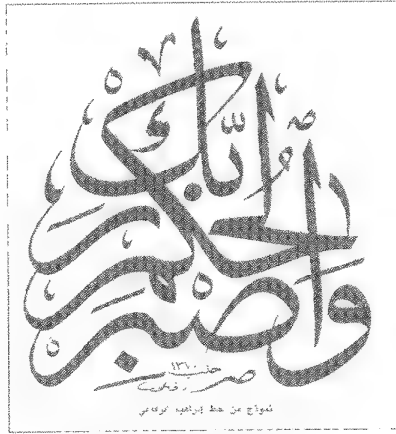 واصبر لحكم ربك
١٣٦٠
نموذج من خط إبراهيم